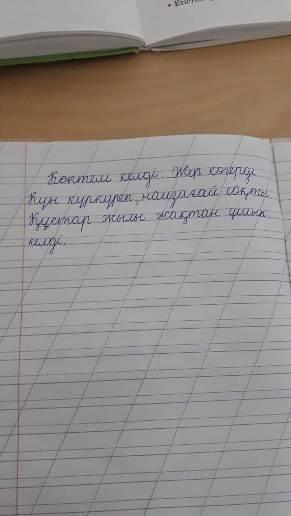 Көктем келді. Жер көгерді
Күн күркіреп, найзағай соқты.
Құстар жылы жақтан ұшып
келді.